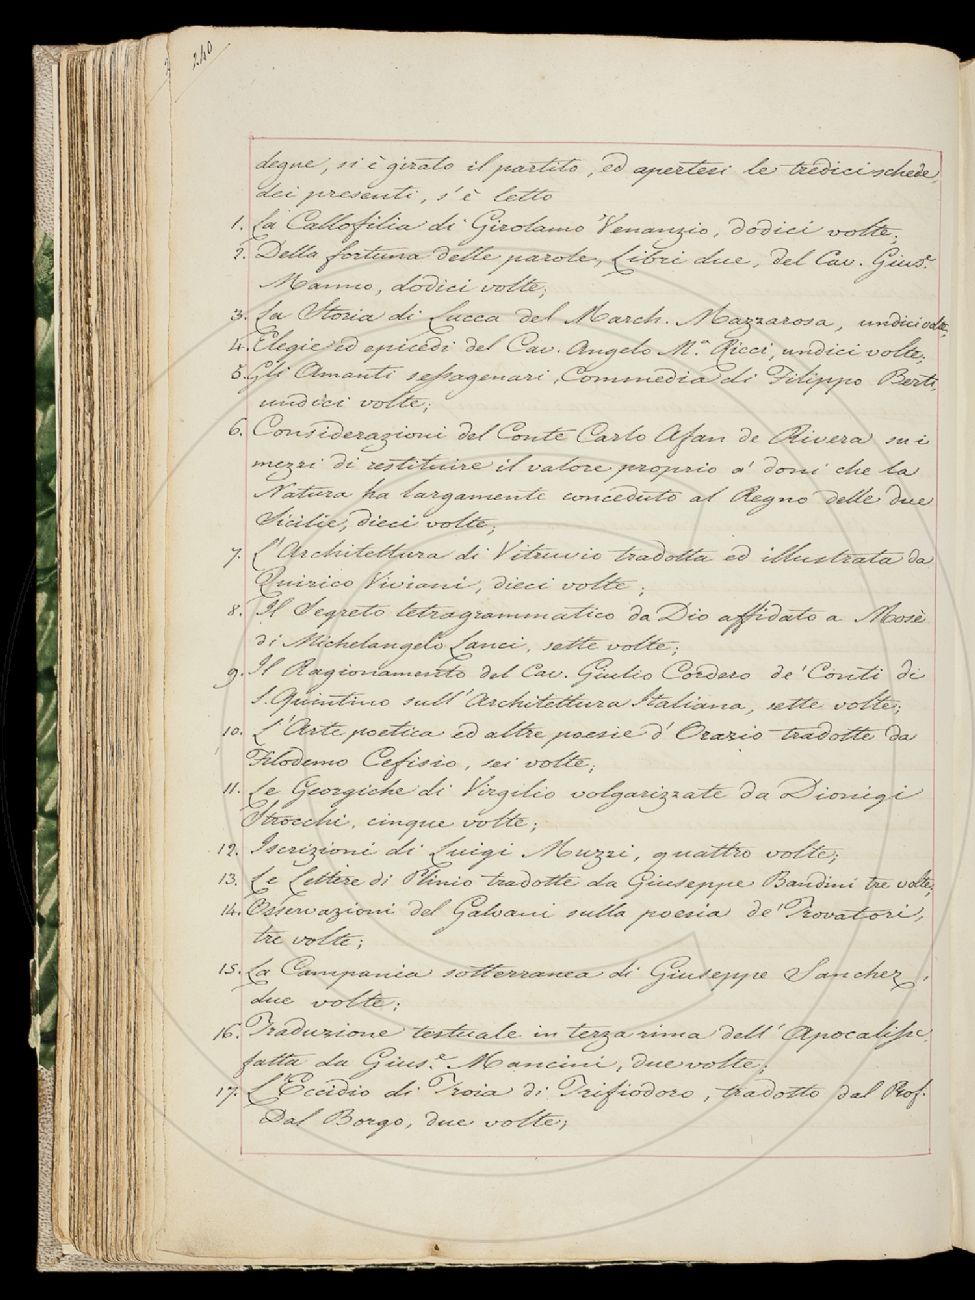 240
degne, si è girato il partito, ed apertesi le tredici schede
dei presenti, s'è letto
1. La Callofilia di Girolamo Venanzio, dodici volte;
2. Della fortuna delle parole, Libri due, del Cav. Gius.e
Manno, dodici volte;
3. La Storia di Lucca del March. Mazzarosa, undici volte;
4. Elegie ed epicedi del Cav. Angelo M.a Ricci, undici volte;
5. Gli Amanti sessagenari, Commedia di Filippo Berti,
undici volte;
6. Considerazioni del Conte Carlo Afan de Rivera su i
mezzi di restituire il valore proprio a' doni che la
Natura ha largamente conceduto al Regno delle due
Sicilie, dieci volte;
7. L'Architettura di Vitruvio tradotta ed illustrata da
Quirico Viviani, dieci volte;
8. Il Segreto tetragrammatico da Dio affidato a Mosè
di Michelangelo Lanci, sette volte;
9. Il Ragionamento del Cav. Giulio Cordero de' Conti di
S. Quintino sull'Architettura Italiana, sette volte;
10. L'Arte poetica ed altre poesie d'Orazio tradotte da
Filodemo Cefisio, sei volte;
11. Le Georgiche di Virgilio volgarizzate da Dionigi
Strocchi, cinque volte;
12. Iscrizioni di Luigi Muzzi, quattro volte;
13. Le Lettere di Plinio tradotte da Giuseppe Bandini tre volte;
14. Osservazioni del Galvani sulla poesia de' Trovatori,
tre volte;
15. La Campania sotterranea di Giuseppe Sanchez,
due volte;
16. Traduzione testuale in terza rima dell'Apocalisse
fatta da Gius.e Mancini, due volte;
17. L'Eccidio di Troia di Trifiodoro, tradotto dal Prof.
Dal Borgo, due volte;